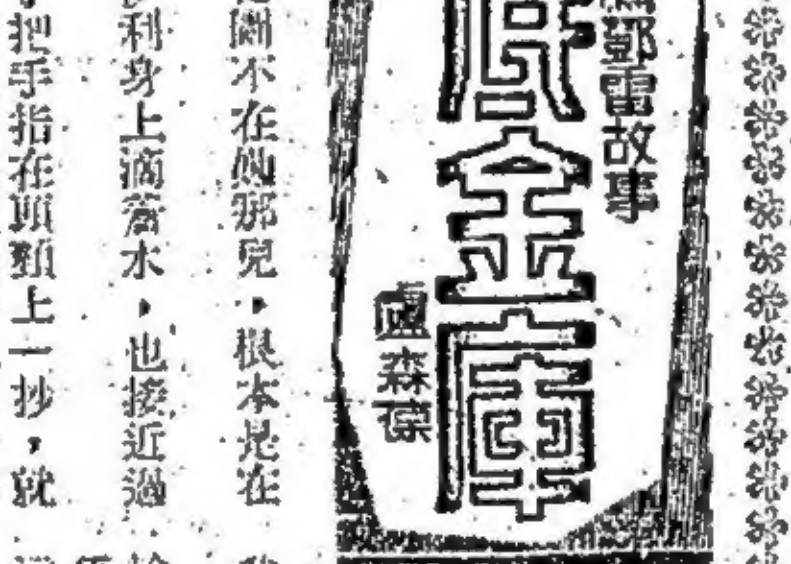 鄧雷故事
底金庫
盧森葆
不在那兒，根本是在
利身上滴着水，也接近過
把手指在頭頸上一抄，就